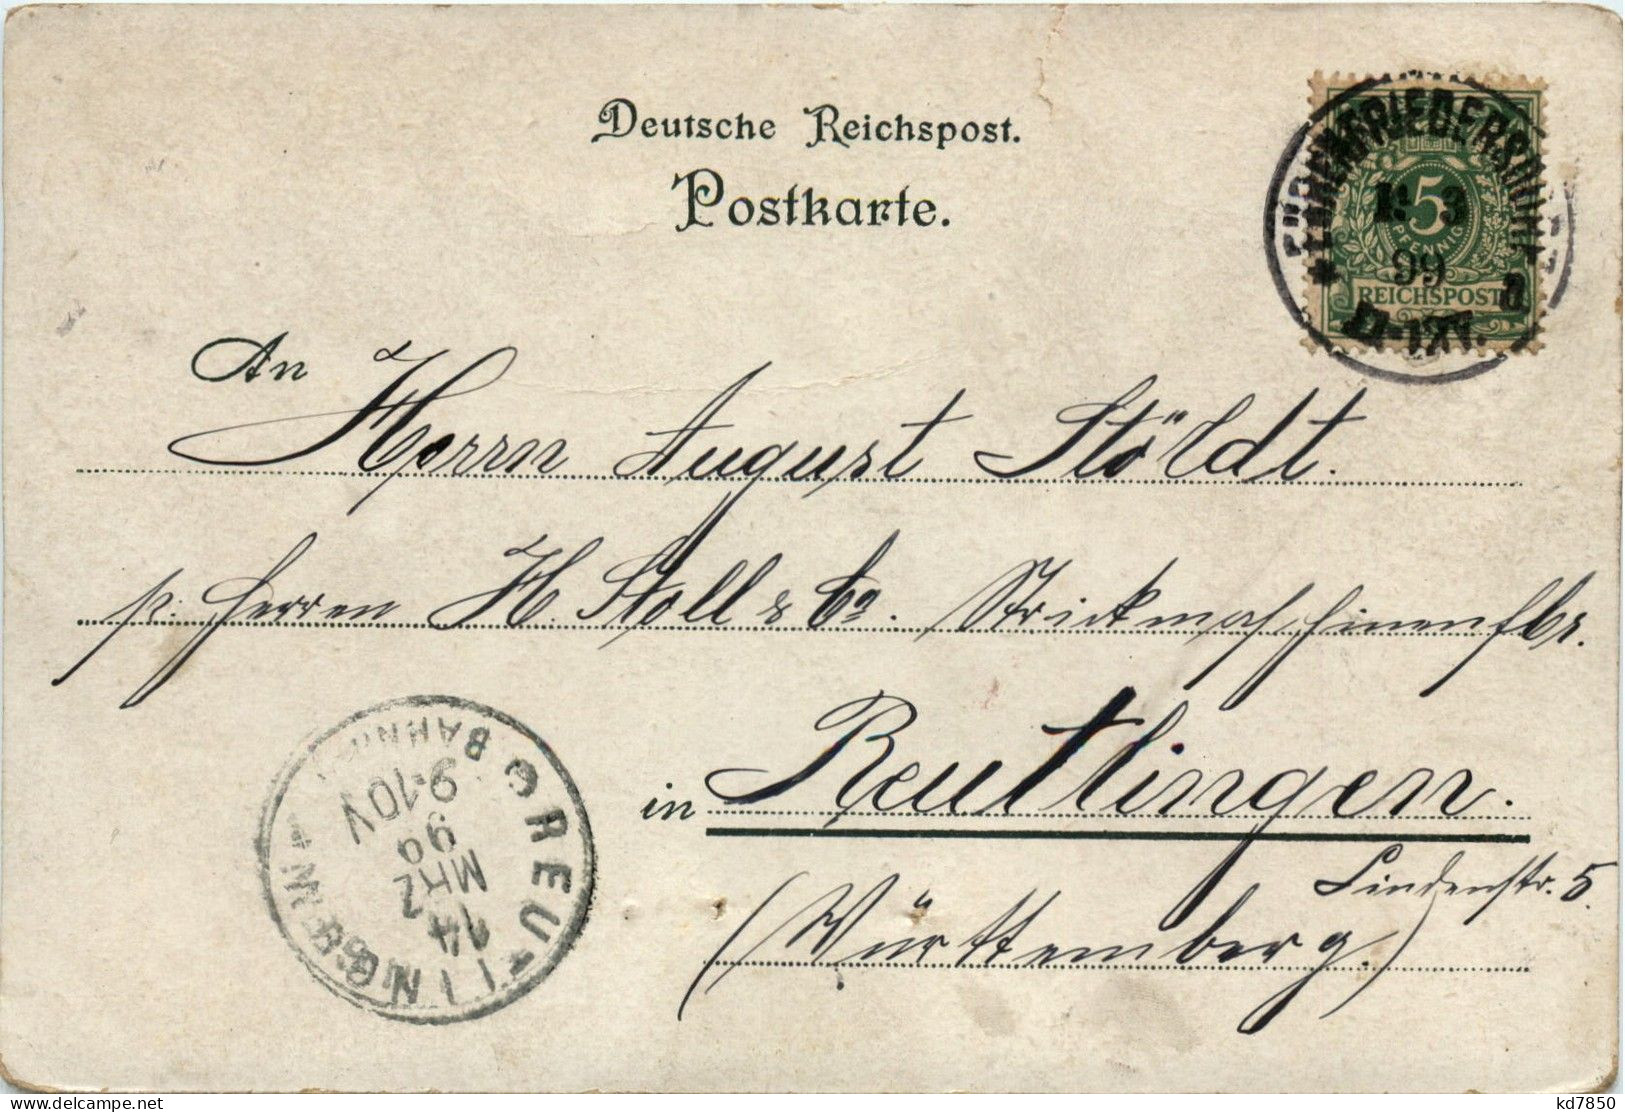 Deutsche Reichspost.
Postkarte.
5
PFENNIG
REICHSPOST
99
An Herrn August Stöldt.
p. Herren H. Stoll & Co. Strickmaschinenfbr.
in Reutlingen.
Lindenstr. 5.
(Württemberg.)
REUTLINGEN
BAHNHOF
14
MRZ
99
9-10V
delcampe.net
kd7850